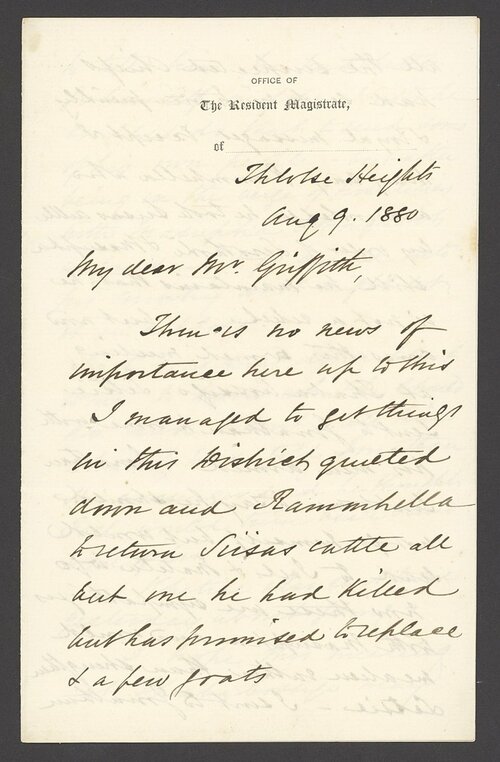 OFFICE OF
The Resident Magistrate,
of
Thlotse Heights
Aug 9. 1880
My dear Mr. Griffith,
There is no news of
importance here up to this
I managed to get things
in this District quieted
down and Rammhella
to return Siisas cattle all
but one he had killed
but has promised to replace
& a few goats